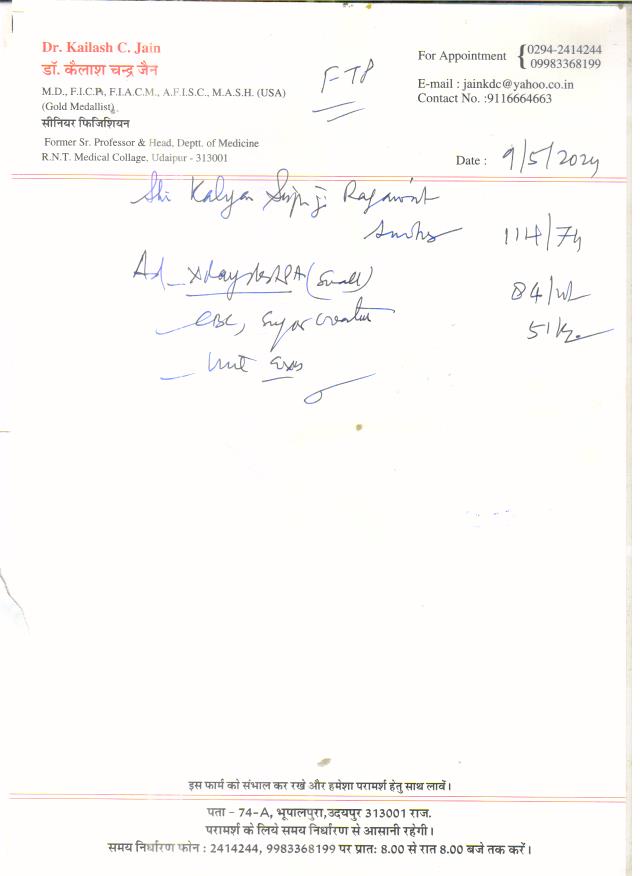 Dr. Kailash C. Jain
डॉ. कैलाश चन्द्र जैन
M.D., F.I.C.P., F.I.A.C.M., A.F.I.S.C., M.A.S.H. (USA)
(Gold Medallist)
सीनियर फिजिशियन
Former Sr. Professor & Head, Deptt. of Medicine
R.N.T. Medical Collage, Udaipur - 313001
For Appointment { 0294-2414244
09983368199
E-mail : jainkdc@yahoo.co.in
Contact No. :9116664663
Date : 9/5/2024
Shri Kalyan Singh ji
114/74
Ad (Small)
84/
CBC, Sugar Creatinine
51 kg.
इस फार्म को संभाल कर रखे और हमेशा परामर्श हेतु साथ लावें।
पता - 74-A, भूपालपुरा,उदयपुर 313001 राज.
परामर्श के लिये समय निर्धारण से आसानी रहेगी।
समय निर्धारण फोन : 2414244, 9983368199 पर प्रातः 8.00 से रात 8.00 बजे तक करें।